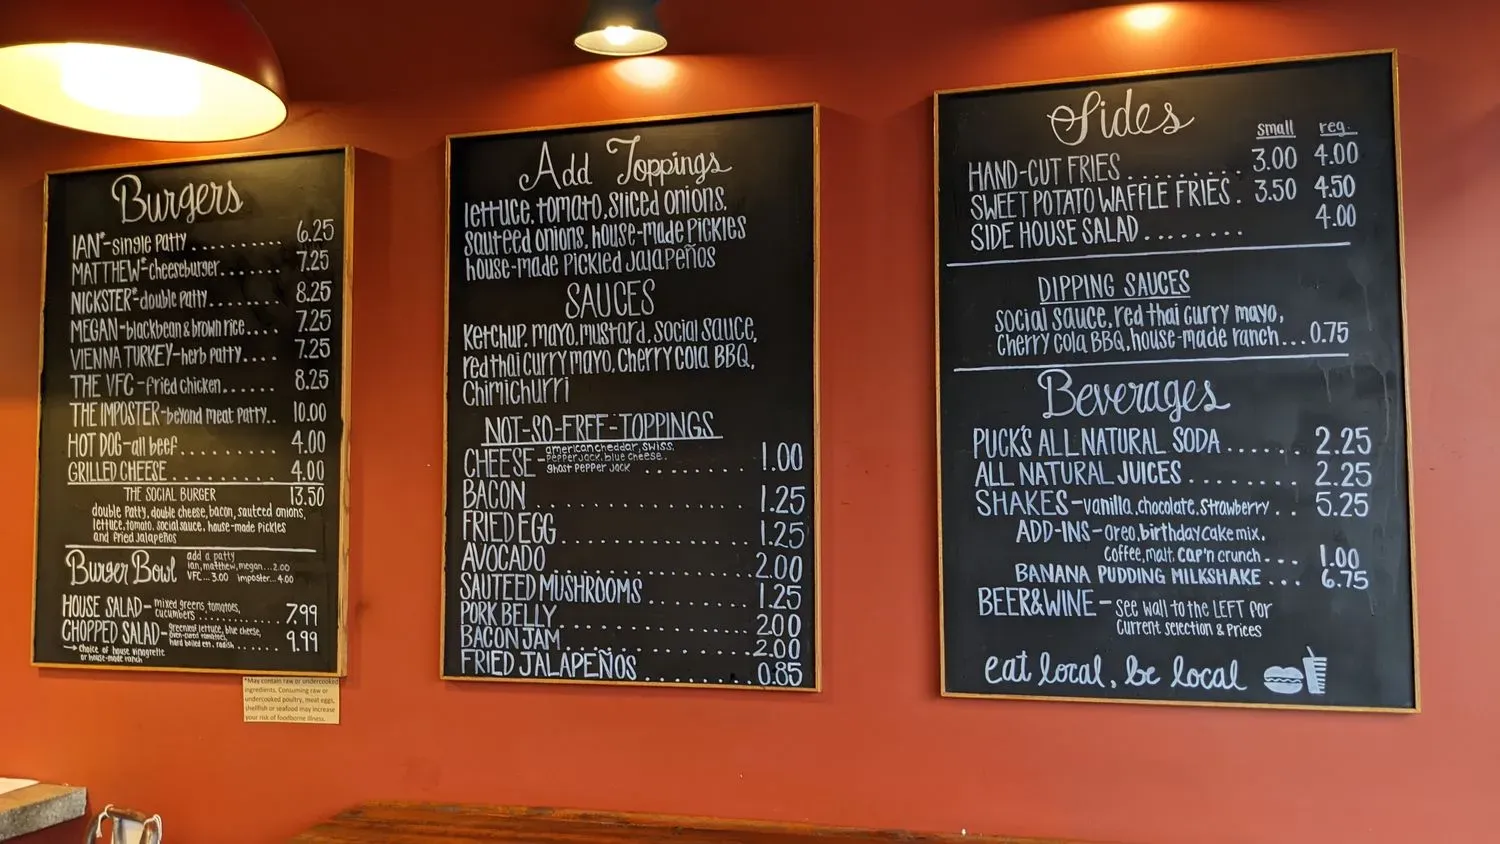 Burgers
IAN*-single patty ......... 6.25
MATTHEW*-cheeseburger....... 7.25
NICKSTER*-double patty........ 8.25
MEGAN-blackbean & brown rice.... 7.25
VIENNA TURKEY-herb patty.... 7.25
THE VFC-fried chicken...... 8.25
THE IMPOSTER-beyond meat patty.. 10.00
HOT DOG-all beef.......... 4.00
GRILLED CHEESE.......... 4.00
THE SOCIAL BURGER 13.50
double patty, double cheese, bacon, sauteed onions,
lettuce, tomato, social sauce, house-made pickles
and fried jalapeños
Burger Bowl
add a patty
ian, matthew, megan...2.00
VFC...3.00 imposter...4.00
HOUSE SALAD-mixed greens, tomatoes,
cucumbers ........... 7.99
CHOPPED SALAD-greenleaf lettuce, blue cheese,
oven-cured tomatoes,
hard boiled egg, radish ...... 9.99
→ choice of house vinaigrette
or house-made ranch
*May contain raw or undercooked
ingredients. Consuming raw or
undercooked poultry, meat eggs,
shellfish or seafood may increase
your risk of foodborne illness.
Add Toppings
lettuce, tomato, sliced onions,
sauteed onions, house-made pickles
house-made pickled jalapeños
SAUCES
ketchup, mayo, mustard, social sauce,
red thai curry mayo, cherry cola BBQ,
Chimichurri
NOT-SO-FREE-TOPPINGS
CHEESE-american, cheddar, swiss,
pepper jack, blue cheese,
ghost pepper jack ......... 1.00
BACON .................. 1.25
FRIED EGG ............... 1.25
AVOCADO ................ 2.00
SAUTEED MUSHROOMS ........ 1.25
PORK BELLY .............. 2.00
BACON JAM ............... 2.00
FRIED JALAPEÑOS ......... 0.85
Sides
small reg.
HAND-CUT FRIES ......... 3.00 4.00
SWEET POTATO WAFFLE FRIES . 3.50 4.50
SIDE HOUSE SALAD........ 4.00
DIPPING SAUCES
social sauce, red thai curry mayo,
cherry cola BBQ, house-made ranch...0.75
Beverages
PUCK'S ALL NATURAL SODA ...... 2.25
ALL NATURAL JUICES ........ 2.25
SHAKES-vanilla, chocolate, strawberry .. 5.25
ADD-INS-oreo, birthday cake mix,
coffee, malt, cap'n crunch... 1.00
BANANA PUDDING MILKSHAKE ... 6.75
BEER&WINE-see wall to the LEFT for
current selection & prices
eat local, be local